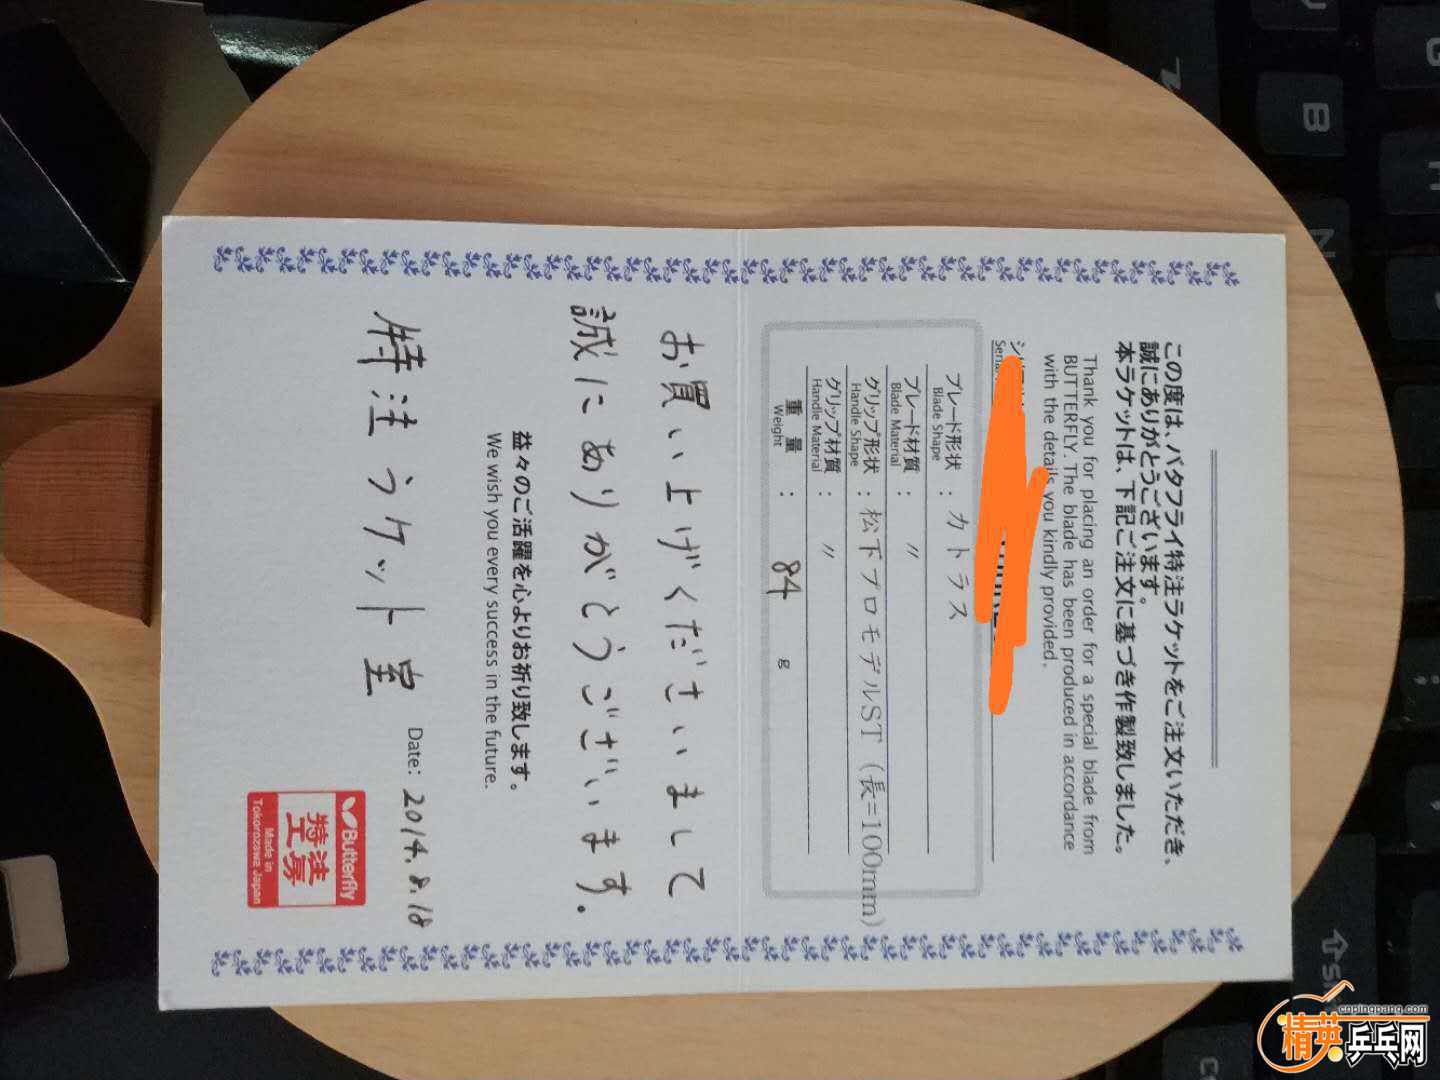 この度は、バタフライ特注ラケットをご注文いただき、
誠にありがとうございます。
本ラケットは、下記ご注文に基づき作製致しました。
Thank you for placing an order for a special blade from
BUTTERFLY. The blade has been produced in accordance
with the details you kindly provided.
ブレード形状 : カトラス
Blade Shape
ブレード材質 : 〃
Blade Material
グリップ形状 : 松下プロモデルST(長=100mm)
Handle Shape
グリップ材質 : 〃
Handle Material
重量 : 84 g
Weight
お買い上げくださいまして
誠にありがとうございます。
益々のご活躍を心よりお祈り致します。
We wish you every success in the future.
特注ラケット室
Date: 2014.8.18
Butterfly
特注
工房
Made in
Tokorozawa Japan
Z
B
N
cnpingpang.com
精英乒乓网